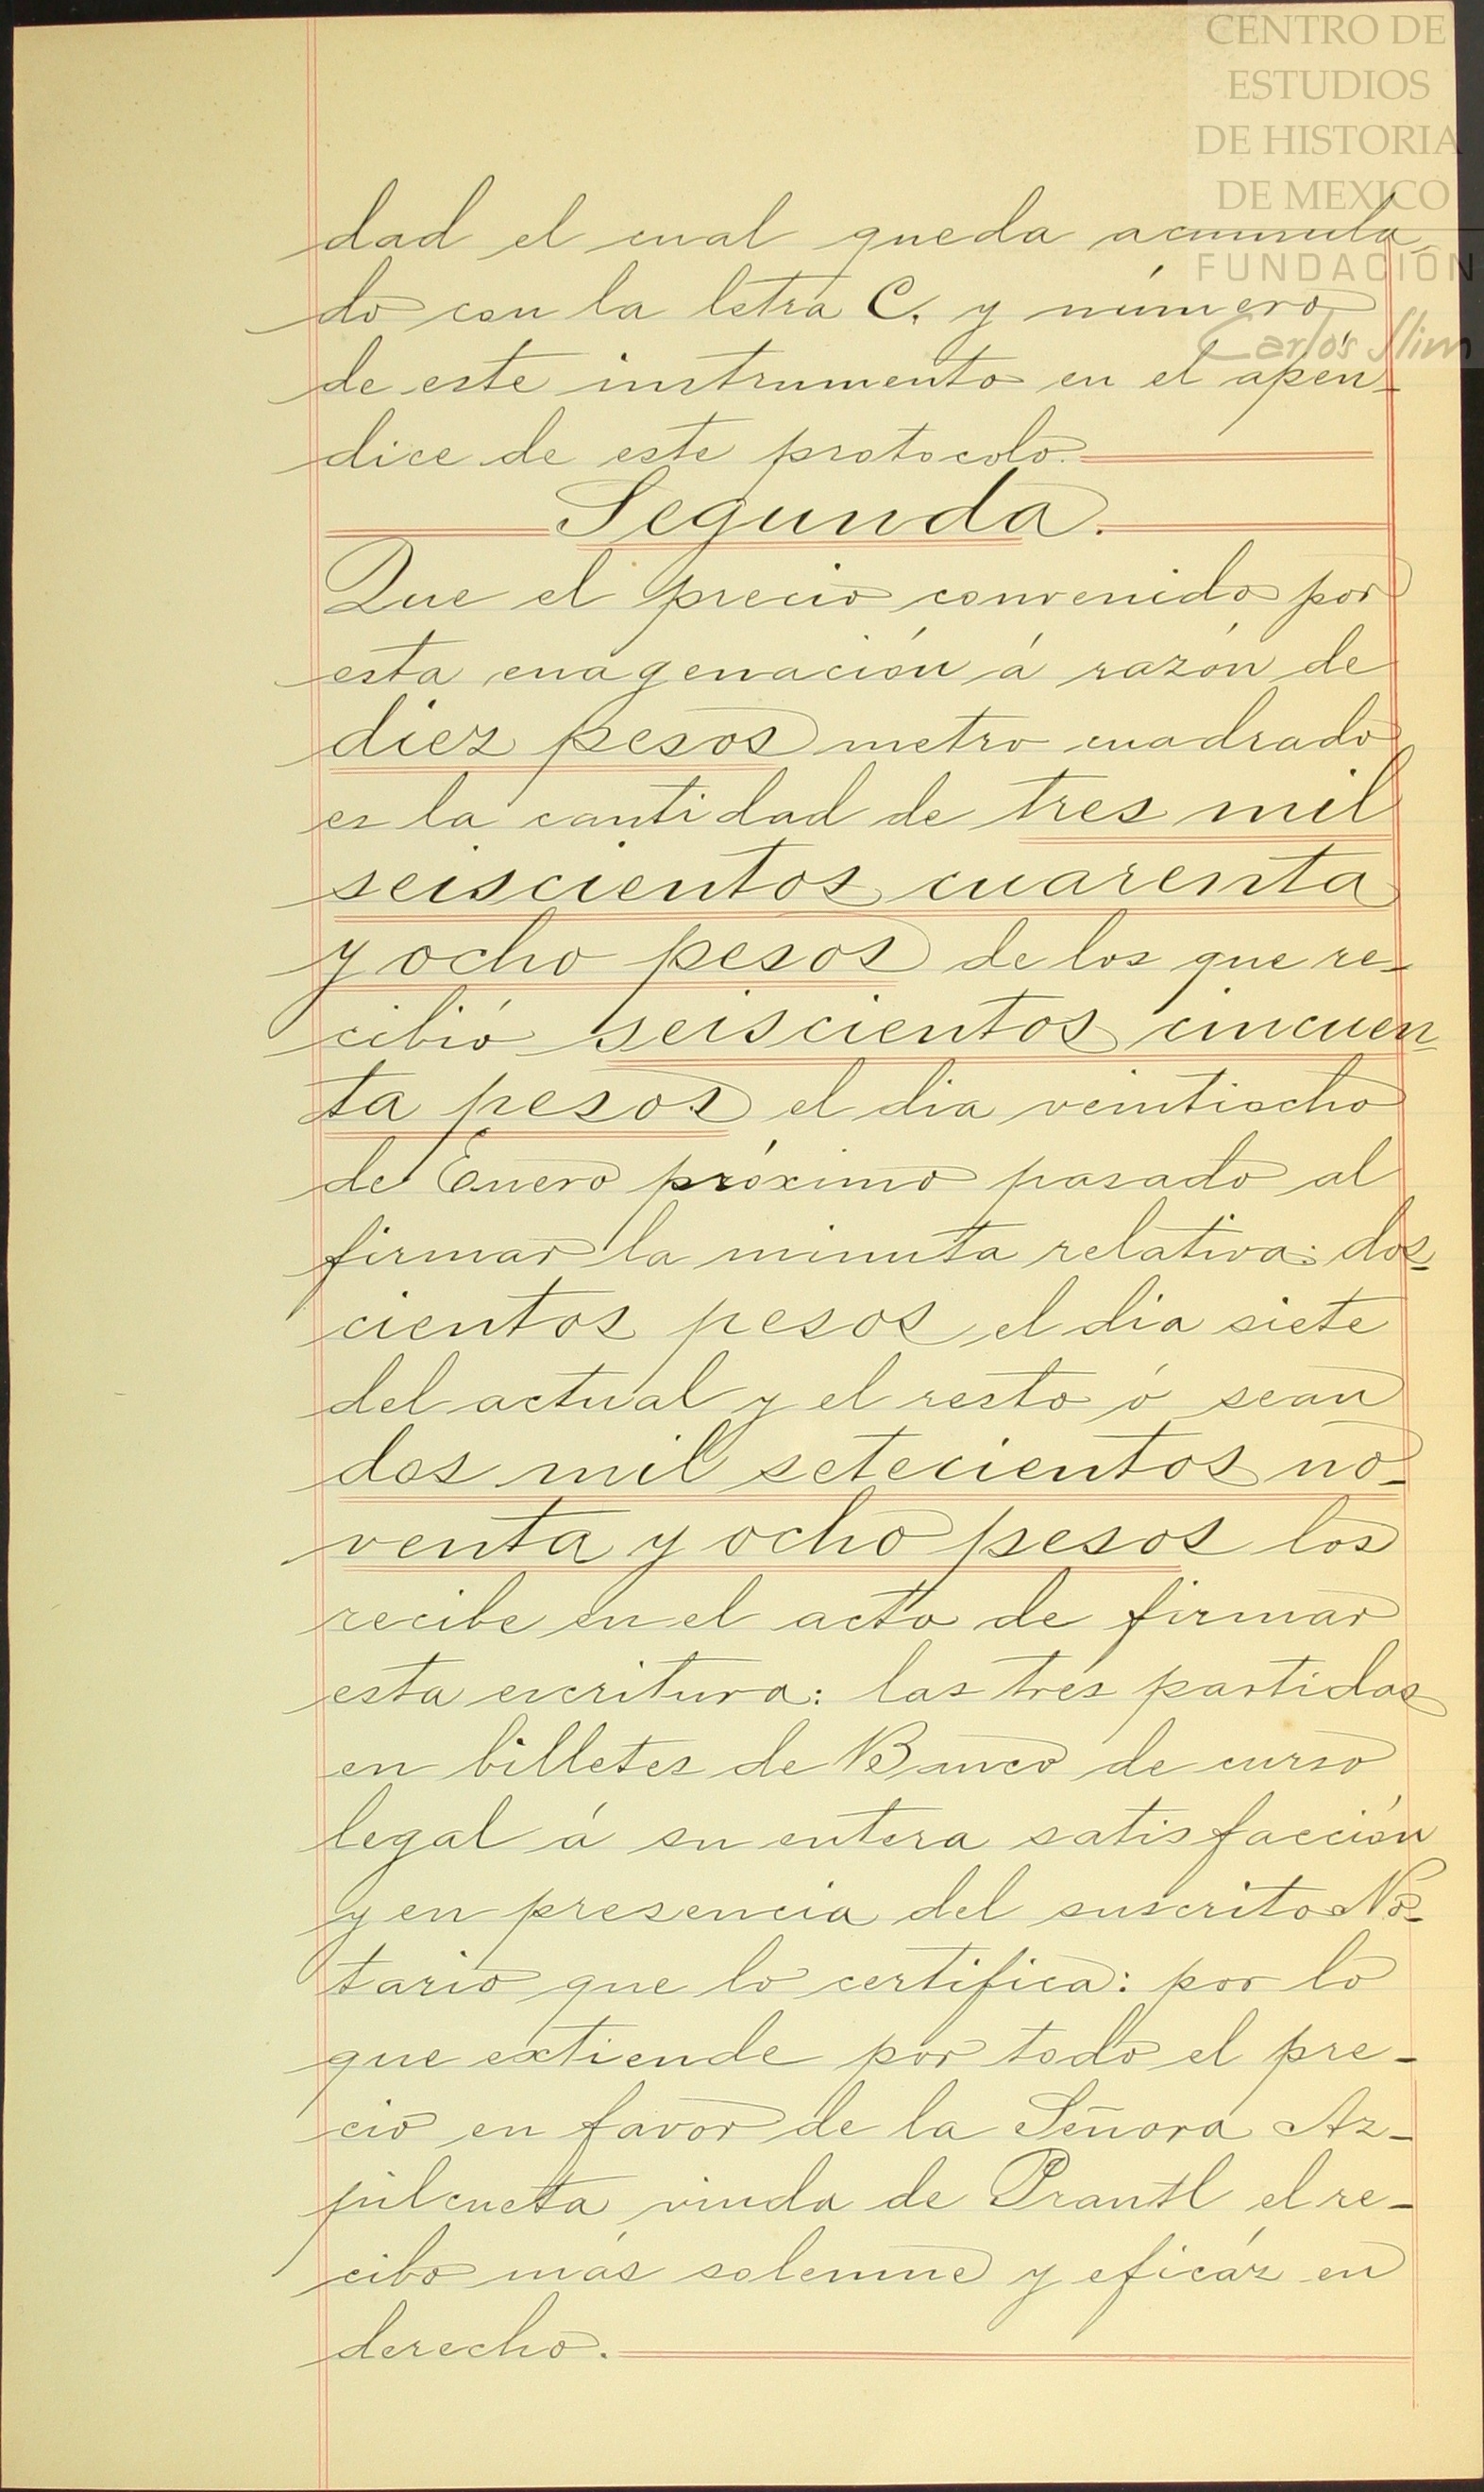 CENTRO DE
ESTUDIOS
DE HISTORIA
DE MEXICO
FUNDACIÓN
Carlos Slim
dad el cual queda acumula-
do con la letra C. y número
de este instrumento en el apén-
dice de este protocolo.
Segunda.
Que el precio convenido por
esta enagenación á razón de
diez pesos metro cuadrado
es la cantidad de tres mil
seiscientos cuarenta
y ocho pesos de los que re-
cibió seiscientos cincuen-
ta pesos el dia veintiocho
de Enero próximo pasado al
firmar la minuta relativa: dos-
cientos pesos el dia siete
del actual y el resto ó sean
dos mil setecientos no-
venta y ocho pesos los
recibe en el acto de firmar
esta escritura: las tres partidas
en billetes de Banco de curso
legal á su entera satisfacción
y en presencia del suscrito No-
tario que lo certifica: por lo
que extiende por todo el pre-
cio en favor de la Señora Az-
pilcueta viuda de Prantl el re-
cibo más solemne y eficáz en
derecho.